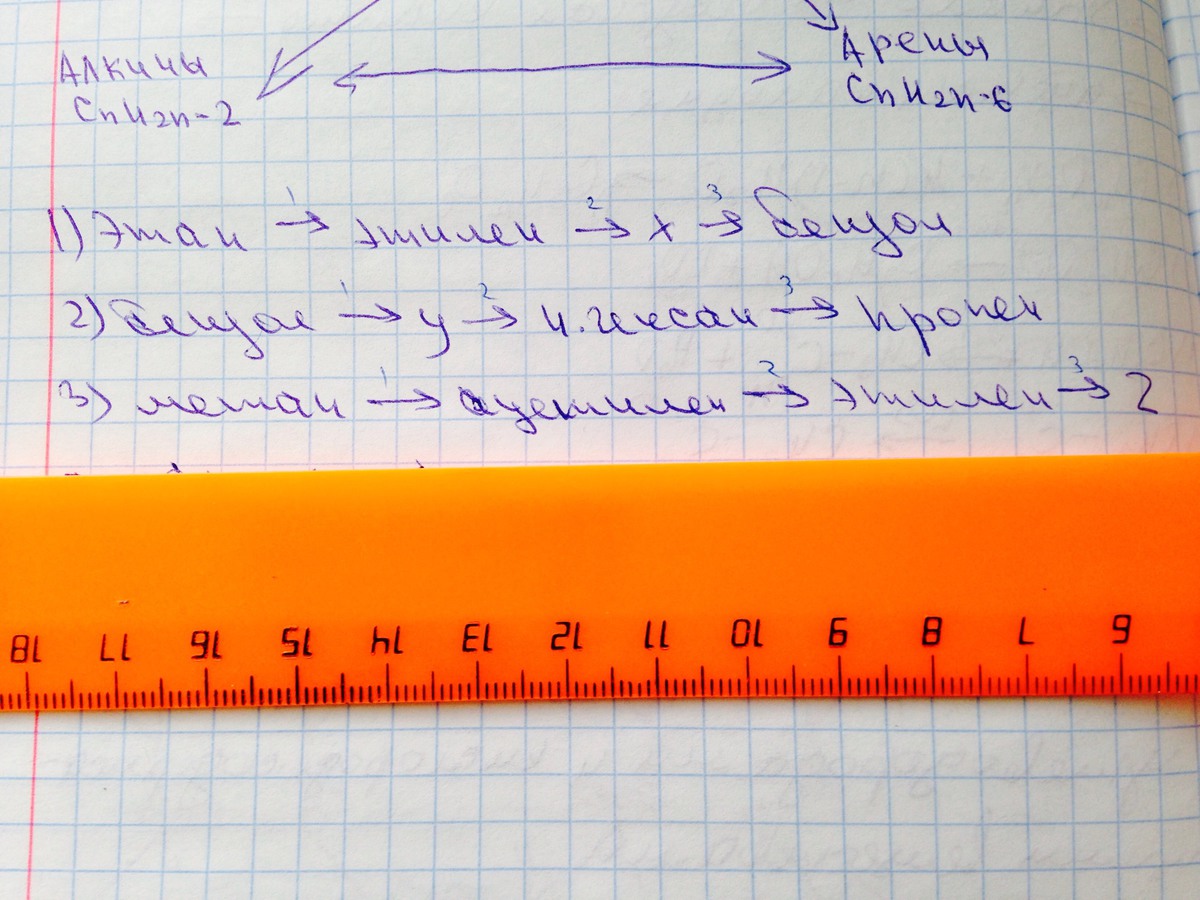 Алкины Арены
CnH2n-2 CnH2n-6
1) Этан 1→ этилен 2→ x 3→ бензол
2) бензол 1→ y 2→ н.гексан 3→ пропен
3) метан 1→ ацетилен 2→ этилен 3→ Z
18 17 16 15 14 13 12 11 10 9 8 7 6